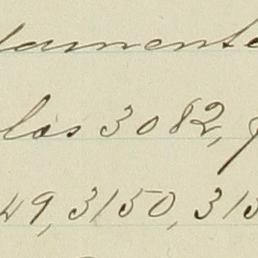 damente
las 3082, 
49, 3150, 313